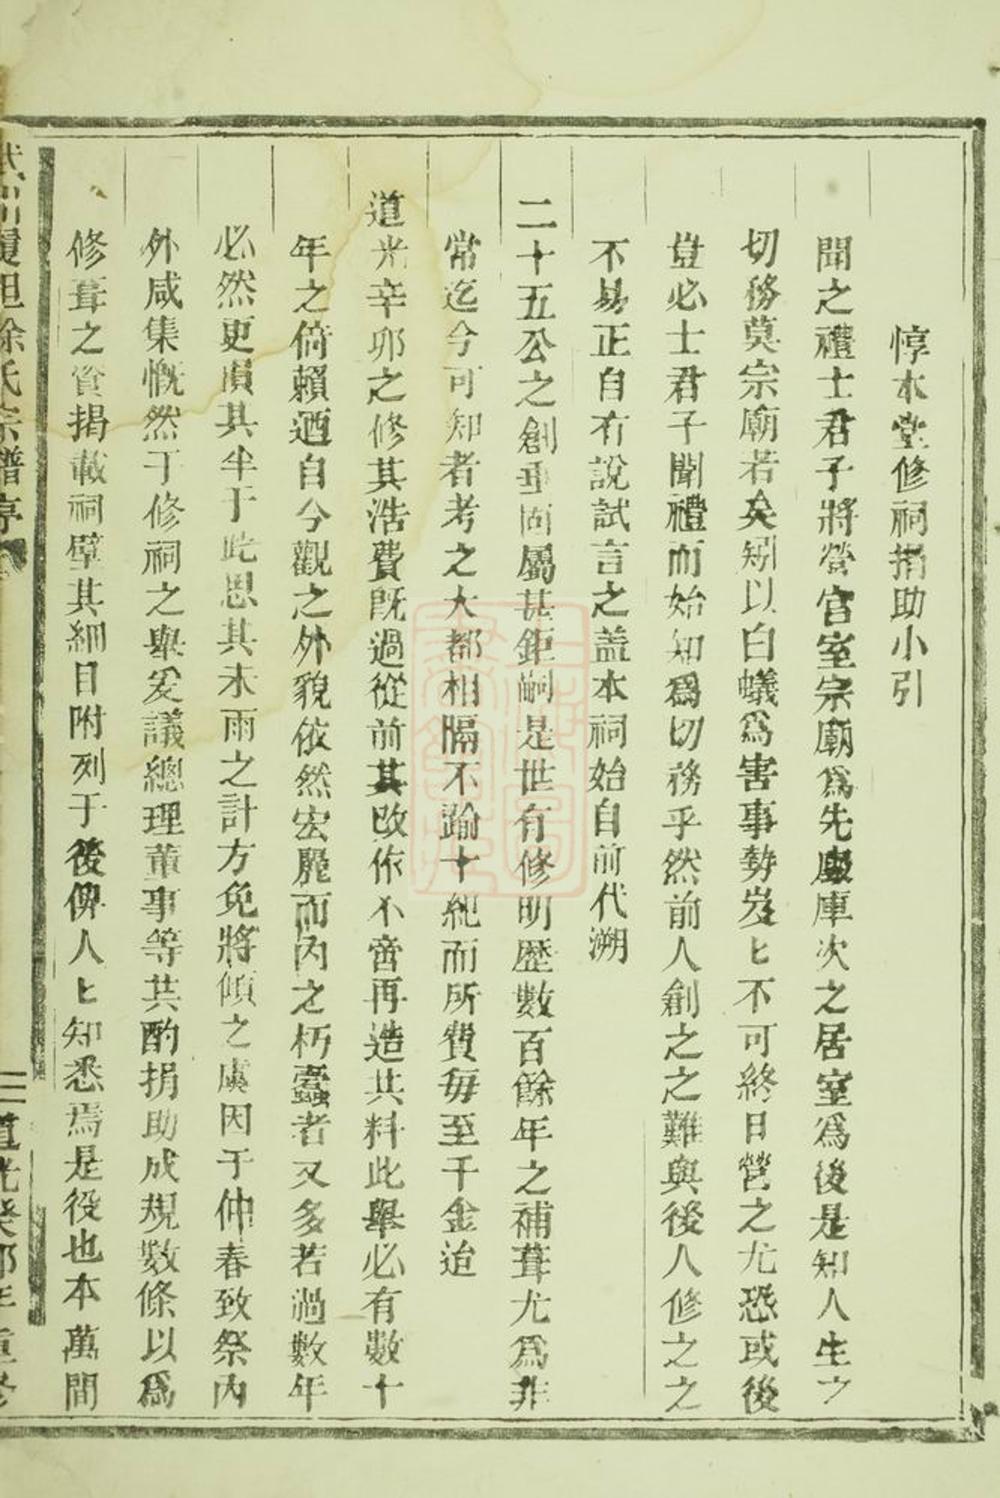 惇本堂修祠捐助小引
聞之禮士君子將營宮室宗廟爲先廄庫次之居室爲後是知人生之
切務莫宗廟若矣矧以白蟻爲害事勢岌匕不可終日營之尤恐或後
豈必士君子聞禮而始知爲切務乎然前人創之之難與後人修之之
不易正自有說試言之盖本祠始自前代溯
二十五公之創垂固屬甚鉅嗣是世有修明歷數百餘年之補葺尤爲非
常迄今可知者考之大都相隔不踰十紀而所費每至千金迨
道光辛卯之修其浩費旣過從前其改作不啻再造共料此舉必有數十
年之倚賴迺自今觀之外貌依然宏麗而內之朽蠹者又多若過數年
必然更隕其半于此思其未雨之計方免將傾之虞因于仲春致祭內
外咸集慨然于修祠之舉爰議總理董事等共酌捐助成規數條以爲
修葺之資揭載祠壁其細目附列于後俾人匕知悉焉是役也本萬間
履坦徐氏宗譜序
道光癸卯年重修